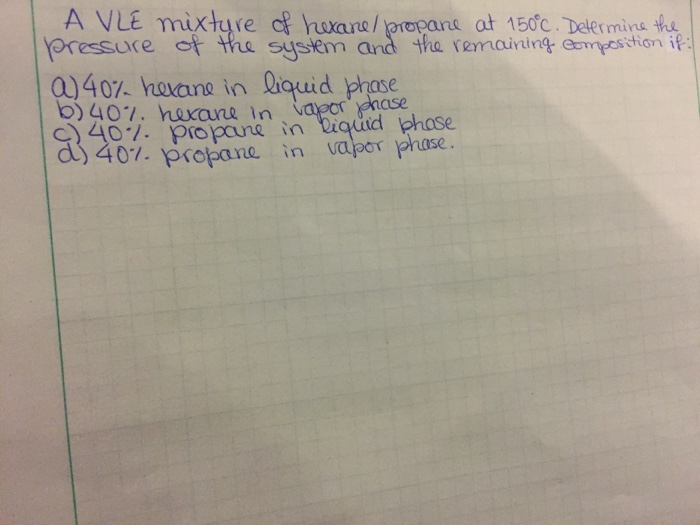 A VLE mixture of hexane/propane at 150°C. Determine the
pressure of the system and the remaining composition if:
a) 40% hexane in liquid phase
b) 40%. hexane in vapor phase
c) 40%. propane in liquid phase
d) 40%. propane in vapor phase.